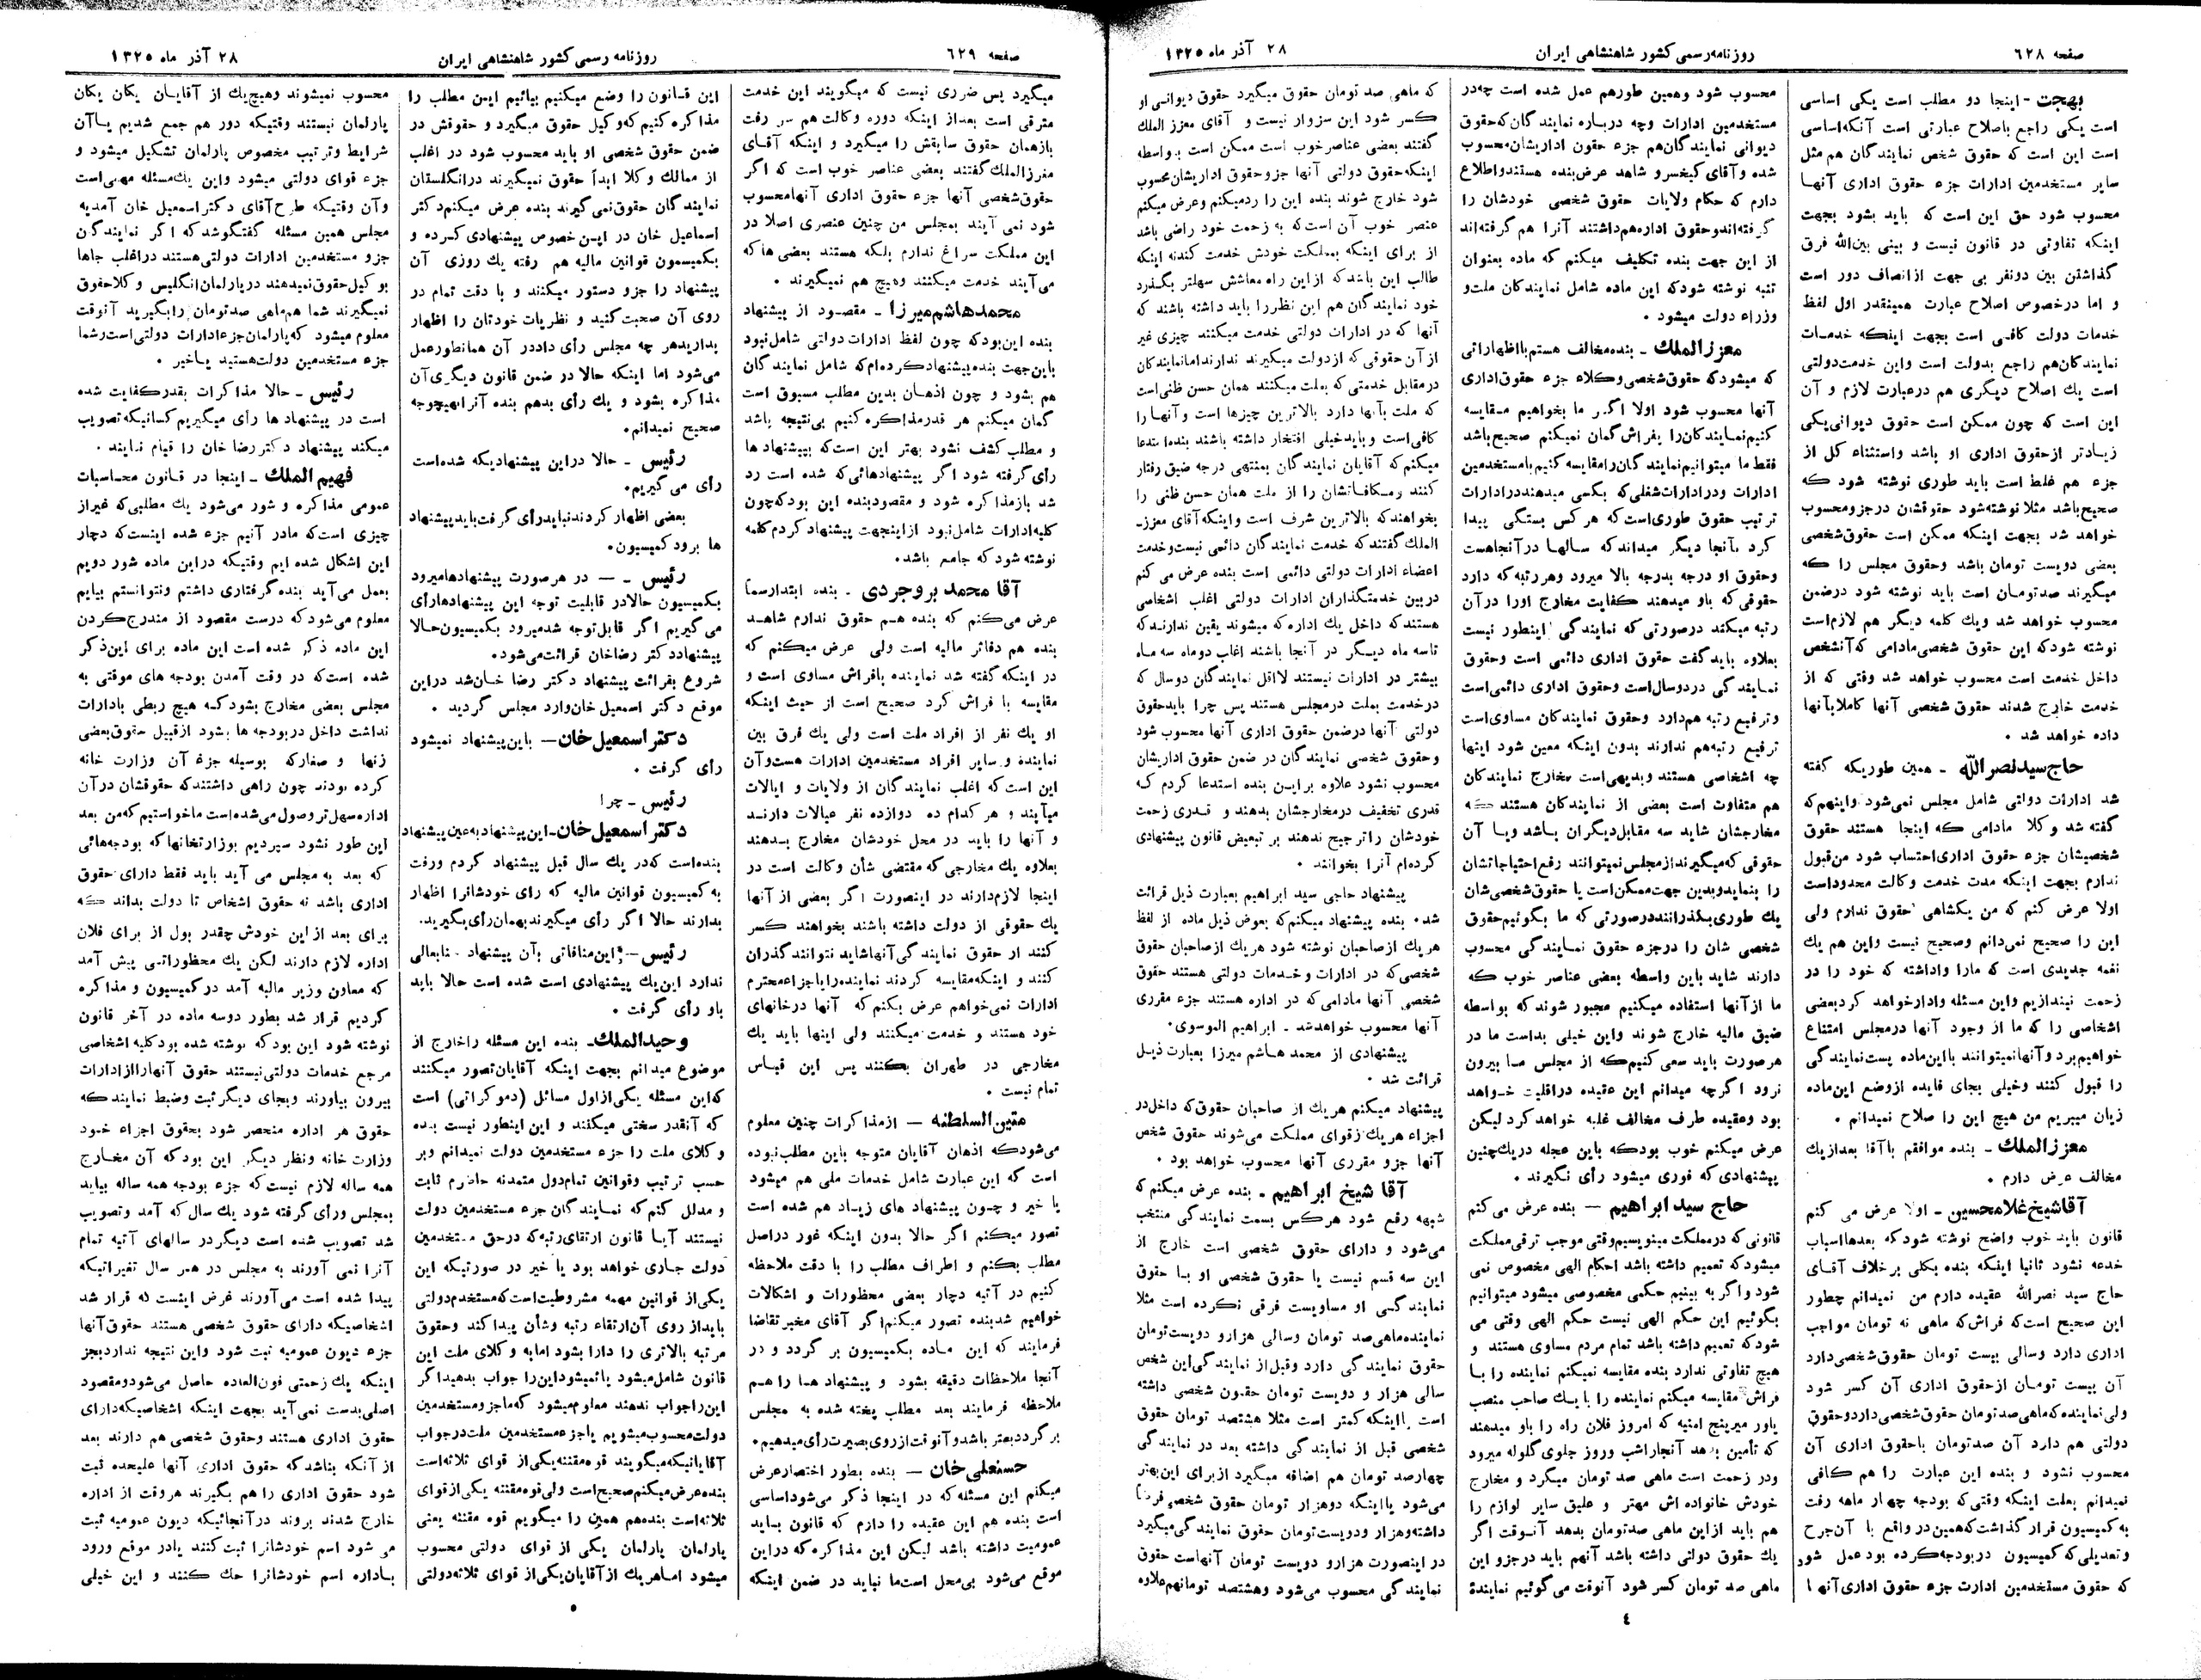 صفحه ٦٢٨
روزنامه رسمی کشور شاهنشاهی ایران
٢٨ آذر ماه ١٣٢٥
بهجت - اینجا دو مطلب است یکی اساسی
است یکی راجع باصلاح عبارتی است آنکه اساسی
است این است که حقوق شخص نمایندگان هم مثل
سایر مستخدمین ادارات جزء حقوق اداری آنها
محسوب شود حق این است که باید بشود بجهت
اینکه تفاوتی در قانون نیست و بینی بین‌الله فرق
گذاشتن بین دونفر بی جهت از انصاف دور است
و اما درخصوص اصلاح عبارت همینقدر اول لفظ
خدمات دولت کافی است بجهت اینکه خدمات
نمایندگان هم راجع بدولت است واین خدمت دولتی
است یك اصلاح دیگری هم درعبارت لازم و آن
این است که چون ممکن است حقوق دیوانی یکی
زیادتر ازحقوق اداری او باشد واستثناء کل از
جزء هم غلط است باید طوری نوشته شود که
صحیح باشد مثلا نوشته شود حقوقشان درجزو محسوب
خواهد شد بجهت اینکه ممکن است حقوق شخصی
بعضی دویست تومان باشد وحقوق مجلس را که
میگیرند صدتومان است باید نوشته شود درضمن
محسوب خواهد شد ویك کلمه دیگر هم لازم است
نوشته شود که این حقوق شخصی مادامی که آنشخص
داخل خدمت است محسوب خواهد شد وقتی که از
خدمت خارج شدند حقوق شخصی آنها کاملا بآنها
داده خواهد شد .
حاج سید نصرالله - همین طوریکه گفته
شد ادارات دولتی شامل مجلس نمی‌شود واینهم که
گفته شد وکلا مادامی که اینجا هستند حقوق
شخصیشان جزء حقوق اداری احتساب شود من قبول
ندارم بجهت اینکه مدت خدمت وکالت محدود است
اولا عرض کنم که من یکشاهی حقوق ندارم ولی
این را صحیح نمی‌دانم وصحیح نیست واین هم یك
نغمه جدیدی است که مارا واداشته که خود را در
زحمت نیندازیم واین مسئله وادارخواهد کرد بعضی
اشخاصی را که ما از وجود آنها درمجلس امتناع
خواهیم برد وآنها نمیتوانند بااین ماده پست نمایندگی
را قبول کنند وخیلی بجای فایده ازوضع این ماده
زیان میبریم من هیچ این را صلاح نمیدانم .
معزز الملك - بنده موافقم باآقا بعد از یك
مخالف عرض دارم .
آقا شیخ غلامحسین - اولا عرض می کنم
قانون باید خوب واضح نوشته شود که بعدها اسباب
خدعه نشود ثانیا اینکه بنده بکلی برخلاف آقای
حاج سید نصرالله عقیده دارم من نمیدانم چطور
این صحیح است که فراش که ماهی نه تومان مواجب
اداری دارد وسالی بیست تومان حقوق شخصی دارد
آن بیست تومان ازحقوق اداری آن کسر شود
ولی نماینده که ماهی صد تومان حقوق شخصی دارد وحقوق
دولتی هم دارد آن صدتومان باحقوق اداری آن
محسوب نشود و بنده این عبارت را هم کافی
نمیدانم بعلت اینکه وقتی که بودجه چهار ماهه رفت
به کمیسیون قرار گذاشت که همین در واقع با آن جرح
وتعدیلی که کمیسیون دربودجه کرده بود عمل شود
که حقوق مستخدمین ادارت جزء حقوق اداری آنها
محسوب شود وهمین طورهم عمل شده است چه در
مستخدمین ادارات وچه درباره نمایندگان که حقوق
دیوانی نمایندگان هم جزء حقون اداریشان محسوب
شده وآقای کیخسرو شاهد عرض بنده هستند واطلاع
دارم که حکام ولایات حقوق شخصی خودشان را
گرفته‌اند وحقوق اداره هم داشتند آنرا هم گرفته‌اند
از این جهت بنده تکلیف میکنم که ماده بعنوان
تنبه نوشته شود که این ماده شامل نمایندگان ملت و
وزراء دولت میشود .
معزز الملك - بنده مخالف هستم بااظهاراتی
که میشود که حقوق شخصی وکلاء جزء حقوق اداری
آنها محسوب شود اولا اگر ما بخواهیم مقایسه
کنیم نمایندگان را بفراش گمان نمیکنم صحیح باشد
فقط ما میتوانیم نمایندگان را مقایسه کنیم بامستخدمین
ادارات ودر ادارات شغلی که بکسی میدهند در ادارات
ترتیب حقوق طوری است که هر کس بستگی پیدا
کرد بآنجا دیگر میداند که سالها در آنجا هست
وحقوق او درجه بدرجه بالا میرود وهر رتبه که دارد
حقوقی که باو میدهند کفایت مخارج اورا درآن
رتبه میکند درصورتی که نمایندگی اینطور نیست
بعلاوه باید گفت حقوق اداری دائمی است وحقوق
نمایندگی دردوسال است وحقوق اداری دائمی است
وترفیع رتبه هم دارد وحقوق نمایندگان مساوی است
ترفیع رتبه هم ندارند بدون اینکه معین شود اینها
چه اشخاصی هستند وبدیهی است مخارج نمایندگان
هم متفاوت است بعضی از نمایندگان هستند که
مخارجشان شاید سه مقابل دیگران باشد ویا آن
حقوقی که میگیرند از مجلس نمیتوانند رفع احتیاجاتشان
را بنماید وبدین جهت ممکن است یا حقوق شخصی‌شان
یك طوری بگذرانند درصورتی که ما بگوئیم حقوق
شخصی شان را درجزء حقوق نمایندگی محسوب
دارند شاید باین واسطه بعضی عناصر خوب که
ما از آنها استفاده میکنیم مجبور شوند که بواسطه
ضیق مالیه خارج شوند واین خیلی بد است ما در
هرصورت باید سعی کنیم که از مجلس ما بیرون
نرود اگرچه میدانم این عقیده دراقلیت خواهد
بود وعقیده طرف مخالف غلبه خواهد کرد لیکن
عرض میکنم خوب بود که باین عجله دریك چنین
پیشنهادی که فوری میشود رأی نگیرند .
حاج سید ابراهیم - بنده عرض می کنم
قانونی که درمملکت مینویسیم وقتی موجب ترقی مملکت
میشود که تعمیم داشته باشد احکام الهی مخصوص نمی
شود واگر به بینیم حکمی مخصوصی میشود میتوانیم
بگوئیم این حکم الهی نیست حکم الهی وقتی می
شود که تعمیم داشته باشد تمام مردم مساوی هستند و
هیچ تفاوتی ندارد بنده مقایسه نمیکنم نماینده را با
فراش مقایسه میکنم نماینده را با یك صاحب منصب
یاور میرینج امنیه که امروز فلان راه را باو میدهند
که تأمین بدهد آنجا را شب وروز جلوی گلوله میرود
ودر زحمت است ماهی صد تومان میگرد و مخارج
خودش خانواده اش مهتر و علیق سایر لوازم را
هم باید ازاین ماهی صد تومان بدهد آنوقت اگر
یك حقوق دولتی داشته باشد آنهم باید درجزو این
ماهی صد تومان کسر شود آنوقت می گوئیم نمایندهٔ
که ماهی صد تومان حقوق میگیرد حقوق دیوانی او
کسر شود این سزوار نیست و آقای معزز الملك
گفتند بعضی عناصر خوب است ممکن است بواسطه
اینکه حقوق دولتی آنها جزو حقوق اداریشان محسوب
شود خارج شوند بنده این را رد میکنم وعرض میکنم
عنصر خوب آن است که به زحمت خود راضی باشد
از برای اینکه بمملکت خودش خدمت کند نه اینکه
طالب این باشد که ازاین راه معاشش سهلتر بگذرد
خود نمایندگان هم این نظررا باید داشته باشند که
آنها که در ادارات دولتی خدمت میکنند چیزی غیر
از آن حقوقی که از دولت میگیرند ندارند اما نمایندگان
درمقابل خدمتی که بملت میکنند همان حسن ظنی است
که ملت بآنها دارد بالاترین چیزها است وآنها را
کافی است و باید خیلی افتخار داشته باشند بنده استدعا
میکنم که آقایان نمایندگان بمنتهی درجه ضیق رفتار
کنند ومکافاتشان را از ملت همان حسن ظنی را
بخواهند که بالاترین شرف است واینکه آقای معزز
الملك گفتند که خدمت نمایندگان دائمی نیست وخدمت
اعضاء ادارات دولتی دائمی است بنده عرض می کنم
دربین خدمتگذاران ادارات دولتی اغلب اشخاصی
هستند که داخل یك اداره که میشوند یقین ندارند که
تاسه ماه دیگر در آنجا باشند اغلب دوماه سه ماه
بیشتر در ادارات نیستند لااقل نمایندگان دوسال که
درخدمت بملت درمجلس هستند پس چرا باید حقوق
دولتی آنها درضمن حقوق اداری آنها محسوب شود
وحقوق شخصی نمایندگان در ضمن حقوق اداریشان
محسوب نشود علاوه براین بنده استدعا کردم که
قدری تخفیف درمخارجشان بدهند و قدری زحمت
خودشان را ترجیح ندهند بر تبعیض قانون پیشنهادی
کرده‌ام آنرا بخوانند .
پیشنهاد حاجی سید ابراهیم بعبارت ذیل قرائت
شد . بنده پیشنهاد میکنم که بعوض ذیل ماده از لفظ
هریك ازصاحبان نوشته شود هریك ازصاحبان حقوق
شخصی که در ادارات وخدمات دولتی هستند حقوق
شخصی آنها مادامی که در اداره هستند جزء مقرری
آنها محسوب خواهد شد . ابراهیم الموسوی .
پیشنهادی از محمد هاشم میرزا بعبارت ذیل
قرائت شد .
پیشنهاد میکنم هریك از صاحبان حقوق که داخل در
اجزاء هریك زقوای مملکت می‌شوند حقوق شخص
آنها جزو مقرری آنها محسوب خواهد بود .
آقا شیخ ابراهیم - بنده عرض میکنم که
شبهه رفع شود هرکس بسمت نمایندگی منتخب
می‌شود و دارای حقوق شخصی است خارج از
این سه قسم نیست یا حقوق شخصی او با حقوق
نمایندگی او مساویست فرقی نکرده است مثلا
نماینده ماهی صد تومان وسالی هزارو دویست تومان
حقوق نمایندگی دارد وقبل از نمایندگی این شخص
سالی هزار و دویست تومان حقون شخصی داشته
است بااینکه کمتر است مثلا هشتصد تومان حقوق
شخصی قبل از نمایندگی داشته بعد در نمایندگی
چهارصد تومان هم اضافه میگیرد از برای این بهتر
می‌شود یااینکه دوهزار تومان حقوق شخصی فرضاً
داشته وهزار ودویست تومان حقوق نمایندگی میگیرد
در اینصورت هزارو دویست تومان آنهاست حقوق
نمایندگی محسوب می‌شود وهشتصد تومانهم علاوه
٤
صفحه ٦٢٩
روزنامه رسمی کشور شاهنشاهی ایران
٢٨ آذر ماه ١٣٢٥
میگیرد پس ضرری نیست که میگویند این خدمت
مترقی است بعد از اینکه دوره وکالت هم سر رفت
بازهمان حقوق سابقش را میگیرد و اینکه آقای
معززالملك گفتند بعضی عناصر خوب است که اگر
حقوق شخصی آنها جزء حقوق اداری آنها محسوب
شود نمی آیند بمجلس من چنین عنصری اصلا در
این مملکت سراغ ندارم بلکه هستند بعضی ها که
می‌آیند خدمت میکنند وهیچ هم نمیگیرند .
محمد هاشم میرزا - مقصود از پیشنهاد
بنده این بود که چون لفظ ادارات دولتی شامل نبود
باین جهت بنده پیشنهاد کرده‌ام که شامل نمایندگان
هم بشود و چون اذهان بدین مطلب مسبوق است
گمان میکنم هر قدر مذاکره کنیم بی‌نتیجه باشد
و مطلب کشف نشود بهتر این است که بپیشنهاد ها
رأی گرفته شود اگر پیشنهادهائی که شده است رد
شد باز مذاکره شود و مقصود بنده این بود که چون
کلیه ادارات شامل نبود ازاینجهت پیشنهاد کردم کلمه
نوشته شود که جامع باشد .
آقا محمد بروجردی - بنده ابتدا رسماً
عرض می‌کنم که بنده هم حقوق ندارم شاهد
بنده هم دفاتر مالیه است ولی عرض میکنم که
در اینکه گفته شد نماینده بافراش مساوی است و
مقایسه با فراش کرد صحیح است از حیث اینکه
او یك نفر از افراد ملت است ولی یك فرق بین
نماینده و سایر افراد مستخدمین ادارات هست وآن
این است که اغلب نمایندگان از ولایات و ایالات
میآیند و هر کدام ده دوازده نفر عیالات دارند
و آنها را باید در محل خودشان مخارج بدهند
بعلاوه یك مخارجی که مقتضی شأن وکالت است در
اینجا لازم دارند در اینصورت اگر بعضی از آنها
یك حقوقی از دولت داشته باشند بخواهند کسر
کنند از حقوق نمایندگی آنها شاید نتوانند گذران
کنند و اینکه مقایسه کردند نماینده را با اجزاء محترم
ادارات نمی‌خواهم عرض بکنم که آنها درخانهای
خود هستند و خدمت میکنند ولی اینها باید یك
مخارجی در طهران بکنند پس این قیاس
تمام نیست .
متین السلطنه - از مذاکرات چنین معلوم
می‌شود که اذهان آقایان متوجه باین مطلب نبوده
است که این عبارت شامل خدمات ملی هم میشود
یا خیر و چون پیشنهاد های زیاد هم شده است
تصور میکنم اگر حالا بدون اینکه غور دراصل
مطلب بکنم و اطراف مطلب را با دقت ملاحظه
کنیم در آتیه دچار بعضی محظورات و اشکالات
خواهیم شد بنده تصور میکنم اگر آقای مخبر تقاضا
فرمایند که این ماده بکمیسیون بر گردد و در
آنجا ملاحظات دقیقه بشود و پیشنهاد ها را هم
ملاحظه فرمایند بعد مطلب پخته شده به مجلس
برگردد بهتر باشد وآنوقت از روی بصیرت رأی میدهیم .
حسنعلی خان - بنده بطور اختصار عرض
میکنم این مسئله که در اینجا ذکر می‌شود اساسی
است بنده هم این عقیده را دارم که قانون باید
عمومیت داشته باشد لیکن این مذاکره که دراین
موقع می‌شود بی‌محل است ما نباید در ضمن اینکه
این قانون را وضع میکنیم بیائیم این مطلب را
مذاکره کنیم که وکیل حقوق میگیرد و حقوقش در
ضمن حقوق شخصی او باید محسوب شود در اغلب
از ممالك وکلا ابداً حقوق نمیگیرند درانگلستان
نمایندگان حقوق نمی گیرند بنده عرض میکنم دکتر
اسماعیل خان در این خصوص پیشنهادی کرده و
بکمیسیون قوانین مالیه هم رفته یك روزی آن
پیشنهاد را جزو دستور میکنند و با دقت تمام در
روی آن صحبت کنید و نظریات خودتان را اظهار
بدارید هر چه مجلس رأی داد در آن همانطور عمل
می‌شود اما اینکه حالا در ضمن قانون دیگری آن
مذاکره بشود و یك رأی بدهم بنده آنرا بهیچوجه
صحیح نمیدانم .
رئیس - حالا دراین پیشنهادیکه شده است
رأی می گیریم .
بعضی اظهار کردند نباید رأی گرفت باید پیشنهاد
ها برود کمیسیون .
رئیس - در هرصورت پیشنهادها میرود
بکمیسیون حالا در قابلیت توجه این پیشنهادها رأی
می گیریم اگر قابل توجه شد میرود بکمیسیون حالا
پیشنهاد دکتر رضاخان قرائت می‌شود .
شروع بقرائت پیشنهاد دکتر رضا خان شد دراین
موقع دکتر اسمعیل خان وارد مجلس گردید .
دکتر اسمعیل خان - باین پیشنهاد نمیشود
رأی گرفت .
رئیس - چرا
دکتر اسمعیل خان - این پیشنهاد به عین پیشنهاد
بنده است که در یك سال قبل پیشنهاد کردم ورفت
به کمیسیون قوانین مالیه که رای خودشانرا اظهار
بدارند حالا اگر رأی میگیرند بهمان رأی بگیرید .
رئیس - این منافاتی بآن پیشنهاد جنابعالی
ندارد این یك پیشنهادی است شده است حالا باید
باو رأی گرفت .
وحید الملك - بنده این مسئله را خارج از
موضوع میدانم بجهت اینکه آقایان تصور میکنند
که این مسئله یکی ازاول مسائل (دموکراتی) است
که آنقدر سختی میکنند و این اینطور نیست بنده
وکلای ملت را جزء مستخدمین دولت نمیدانم وبر
حسب ترتیب وقوانین تمام دول متمدنه حاضرم ثابت
و مدلل کنم که نمایندگان جزء مستخدمین دولت
نیستند آیا قانون ارتقای رتبه که درحق مستخدمین
دولت جاری خواهد بود یا خیر در صورتیکه این
یکی از قوانین مهمه مشروطیت است که مستخدم دولتی
باید از روی آن ارتقاء رتبه وشأن پیدا کند وحقوق
مرتبه بالاتری را دارا بشود اما به وکلای ملت این
قانون شامل میشود یا نمیشود این را جواب بدهید اگر
این را جواب ندهند معلوم میشود که ما جزو مستخدمین
دولت محسوب میشویم یا جزء مستخدمین ملت درجواب
آقایانیکه میگویند قوه مقننه یکی از قوای ثلاثه است
بنده عرض میکنم صحیح است ولی قوه مقننه یکی از قوای
ثلاثه است بنده هم همین را میگویم قوه مقننه یعنی
پارلمان پارلمان یکی از قوای دولتی محسوب
میشود اما هریك از آقایان یکی از قوای ثلاثه دولتی
محسوب نمیشوند وهیچیك از آقایان یکان یکان
پارلمان نیستند وقتیکه دور هم جمع شدیم باآن
شرایط وترتیب مخصوص پارلمان تشکیل میشود و
جزء قوای دولتی میشود واین یك مسئله مهمی است
وآن وقتیکه طرح آقای دکتر اسمعیل خان آمد به
مجلس همین مسئله گفتگو شد که اگر نمایندگان
جزو مستخدمین ادارات دولتی هستند دراغلب جاها
بوکیل حقوق نمیدهند درپارلمان انگلیس وکلا حقوق
نمیگیرند شما هم ماهی صد تومان را بگیرید آنوقت
معلوم میشود که پارلمان جزء ادارات دولتی است وشما
جزء مستخدمین دولت هستید یاخیر .
رئیس - حالا مذاکرات بقدر کفایت شده
است در پیشنهاد ها رأی میگیریم کسانیکه تصویب
میکند پیشنهاد دکتر رضا خان را قیام نمایند .
فهیم الملك - اینجا در قانون محاسبات
عمومی مذاکره و شور می‌شود یك مطلبی که غیراز
چیزی است که مادر آنیم جزء شده اینست که دچار
این اشکال شده ایم وقتیکه دراین ماده شور دویم
بعمل می‌آید بنده گرفتاری داشتم ونتوانستم بیایم
معلوم می‌شود که درست مقصود از مندرج کردن
این ماده ذکر شده است این ماده برای این ذکر
شده است که در وقت آمدن بودجه های موقتی به
مجلس بعضی مخارج بشود که هیچ ربطی بادارات
نداشت داخل دربودجه ها بشود ازقبیل حقوق بعضی
زنها و صغار که بوسیله جزء آن وزارت خانه
کرده بودند چون راهی داشتند که حقوقشان درآن
اداره سهل تر وصول می‌شده است ما خواستیم که من بعد
این طور نشود سپردیم بوزارتخانها که بودجه‌هائی
که بعد به مجلس می آید باید فقط دارای حقوق
اداری باشد نه حقوق اشخاص تا دولت بداند که
برای بعد از این خودش چقدر پول از برای فلان
اداره لازم دارند لکن یك محظوراتی پیش آمد
که معاون وزیر مالیه آمد در کمیسیون و مذاکره
کردیم قرار شد بطور دوسه ماده در آخر قانون
نوشته شود این بود که نوشته شده بود کلیه اشخاصی
مرجع خدمات دولتی نیستند حقوق آنها را از ادارات
بیرون بیاورند وبجای دیگر ثبت وضبط نمایند که
حقوق هر اداره منحصر شود بحقوق اجزاء خود
وزارت خانه ونظر دیگر این بود که آن مخارج
همه ساله لازم نیست که جزء بودجه همه ساله بیاید
بمجلس ورأی گرفته شود یك سال که آمد وتصویب
شد تصویب شده است دیگر در سالهای آتیه تمام
آنرا نمی آورند به مجلس در هر سال تغیراتیکه
پیدا شده است می‌آورند غرض اینست که قرار شد
اشخاصیکه دارای حقوق شخصی هستند حقوق آنها
جزء دیون عمومیه ثبت شود واین نتیجه ندارد بجز
اینکه یك زحمتی فوق‌العاده حاصل می‌شود ومقصود
اصلی بدست نمی‌آید بجهت اینکه اشخاصیکه دارای
حقوق اداری هستند وحقوق شخصی هم دارند بعد
از آنکه بناشد که حقوق اداری آنها علیحده ثبت
شود حقوق اداری را هم بگیرند هروقت از اداره
خارج شدند بروند درآنجائیکه دیون عمومیه ثبت
می شود اسم خودشانرا ثبت کنند یادر موقع ورود
باداره اسم خودشانرا حك کنند و این خیلی